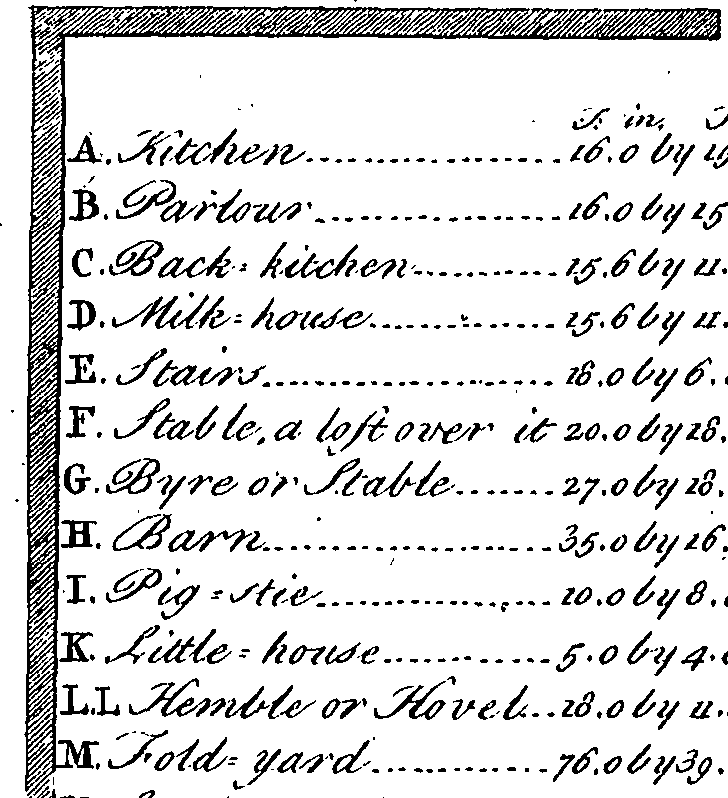 F. in. F
A. Kitchen.................16.0 by 15
B. Parlour.................16.0 by 15
C. Back=kitchen..........15.6 by 11.
D. Milk=house.............15.6 by 11.
E. Stairs.....................18.0 by 6.
F. Stable, a loft over it 20.0 by 18.
G. Byre or Stable.......27.0 by 18.
H. Barn......................35.0 by 16.
I. Pig=stie.................10.0 by 8.
K. Little=house............5.0 by 4.
L.L Hemble or Hovel...18.0 by 11.
M. Fold=yard.............76.0 by 39.